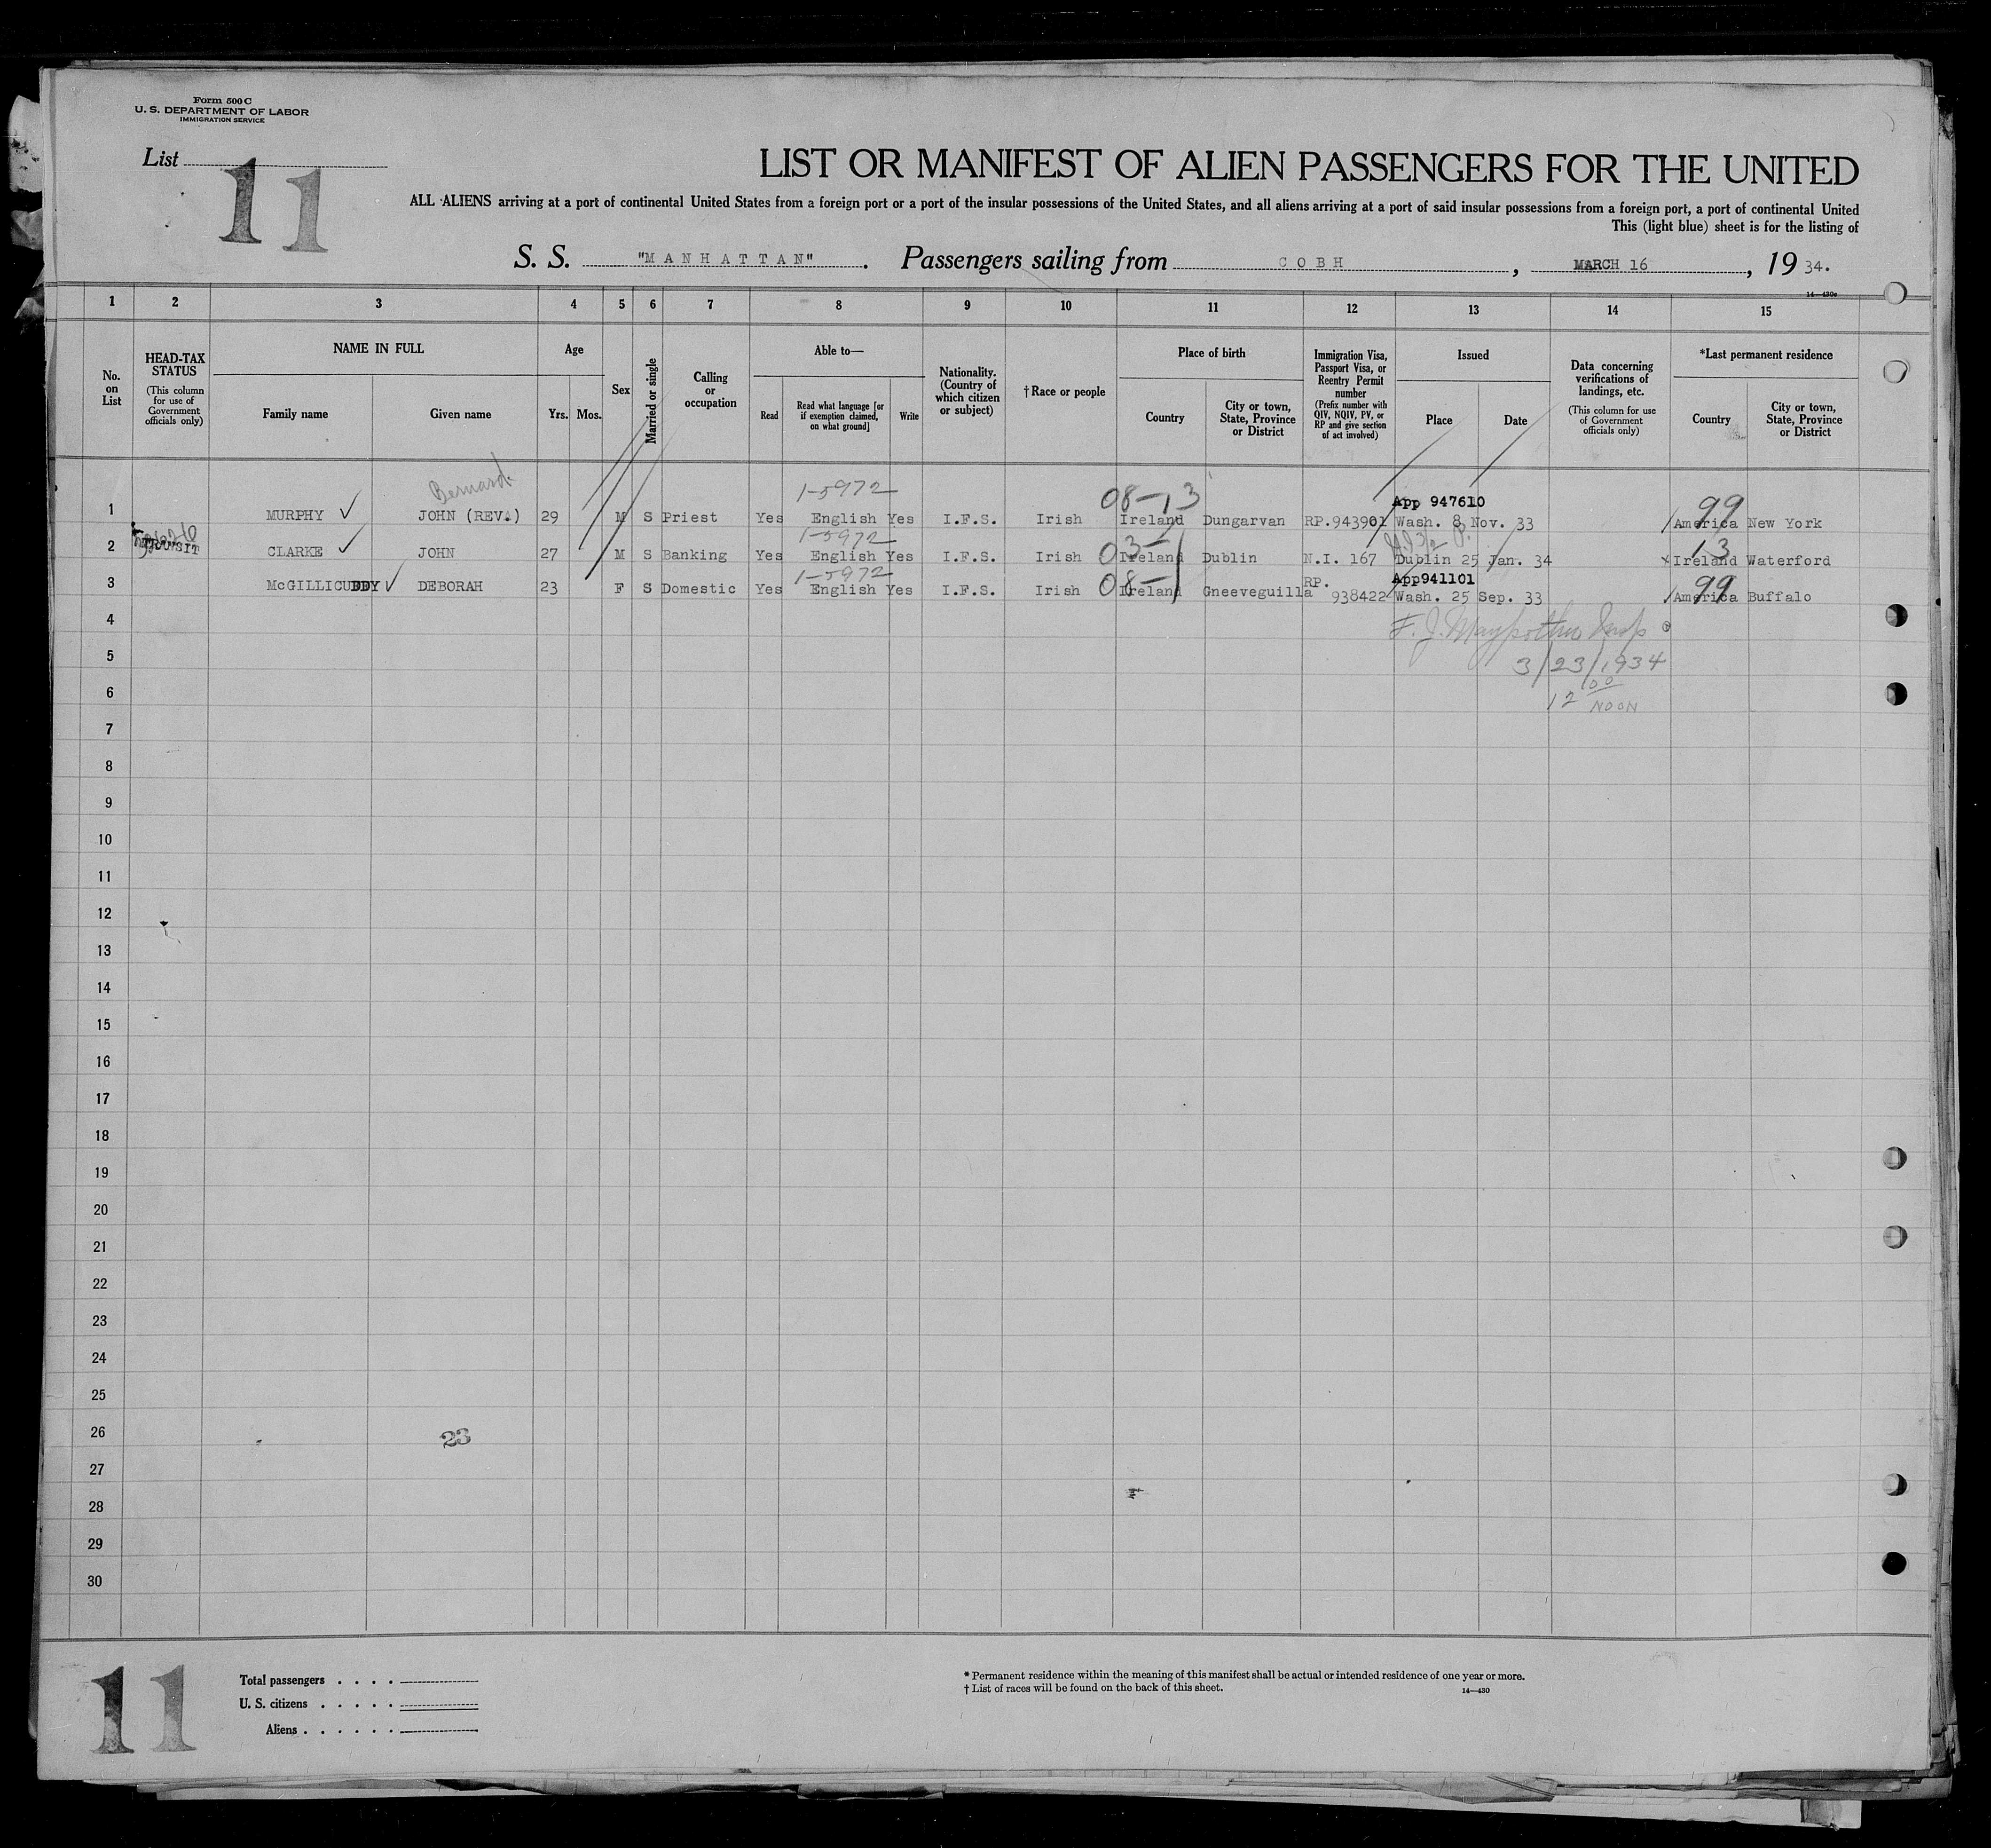 Form 500 C
U. S. DEPARTMENT OF LABOR
IMMIGRATION SERVICE
List
11
LIST OR MANIFEST OF ALIEN PASSENGERS FOR THE UNITED
ALL ALIENS arriving at a port of continental United States from a foreign port or a port of the insular possessions of the United States, and all aliens arriving at a port of said insular possessions from a foreign port, a port of continental United
This (light blue) sheet is for the listing of
S. S. "MANHATTAN". Passengers sailing from COBH, MARCH 16, 1934.
14—430c
1 2 3 4 5 6 7 8 9 10 11 12 13 14 15
No. on List
HEAD-TAX STATUS
(This column for use of Government officials only)
NAME IN FULL
Family name Given name
Age
Yrs. Mos.
Sex
Married or single
Calling or occupation
Able to—
Read
Read what language [or if exemption claimed, on what ground]
Write
Nationality. (Country of which citizen or subject)
†Race or people
Place of birth
Country
City or town, State, Province or District
Immigration Visa, Passport Visa, or Reentry Permit number
(Prefix number with QIV, NQIV, PV, or RP and give section of act involved)
Issued
Place Date
Data concerning verifications of landings, etc.
(This column for use of Government officials only)
*Last permanent residence
Country
City or town, State, Province or District
Bernard
1-5972 08-13 App 947610 99
1 MURPHY JOHN (REV.) 29 M S Priest Yes English Yes I.F.S. Irish Ireland Dungarvan RP.943901 Wash. 8 Nov. 33 America New York
1-5972 03- 13
2 TRANSIT CLARKE JOHN 27 M S Banking Yes English Yes I.F.S. Irish Ireland Dublin N.I. 167 Dublin 25 Jan. 34 Ireland Waterford
1-5972 08- App941101 99
3 McGILLICUDDY DEBORAH 23 F S Domestic Yes English Yes I.F.S. Irish Ireland Gneeveguilla RP. 938422 Wash. 25 Sep. 33 America Buffalo
4 F. J. Insp
5 3/23/1934
6 12 00 NOON
7
8
9
10
11
12
13
14
15
16
17
18
19
20
21
22
23
24
25
26 23
27
28
29
30
11
Total passengers . . . .
U. S. citizens . . . . .
Aliens . . . . . .
* Permanent residence within the meaning of this manifest shall be actual or intended residence of one year or more.
† List of races will be found on the back of this sheet.
14—430